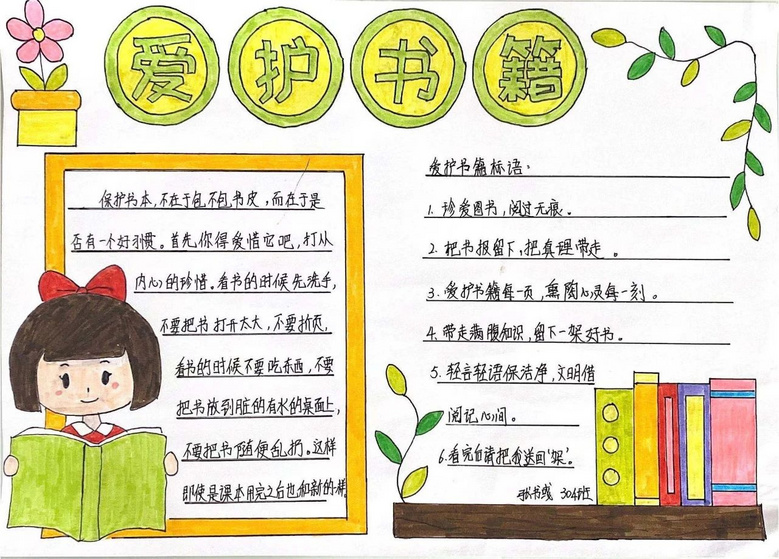 爱护书籍
保护书本,不在于包不包书皮,而在于是
否有一个好习惯。首先你得爱惜它吧,打从
内心的珍惜。看书的时候先洗手,
不要把书打开太大,不要折页,
看书的时候不要吃东西,不要
把书放到脏的有水的桌面上,
不要把书随便乱扔。这样
即使是课本用完之后也和新的一样
爱护书籍标语:
1. 珍爱图书,阅过无痕。
2. 把书报留下,把真理带走。
3. 爱护书籍每一页,熏陶心灵每一刻。
4. 带走满腹知识,留下一架好书。
5. 轻言轻语保洁净,文明借
阅记心间。
6. 看完后请把我送回‘架’。
304班